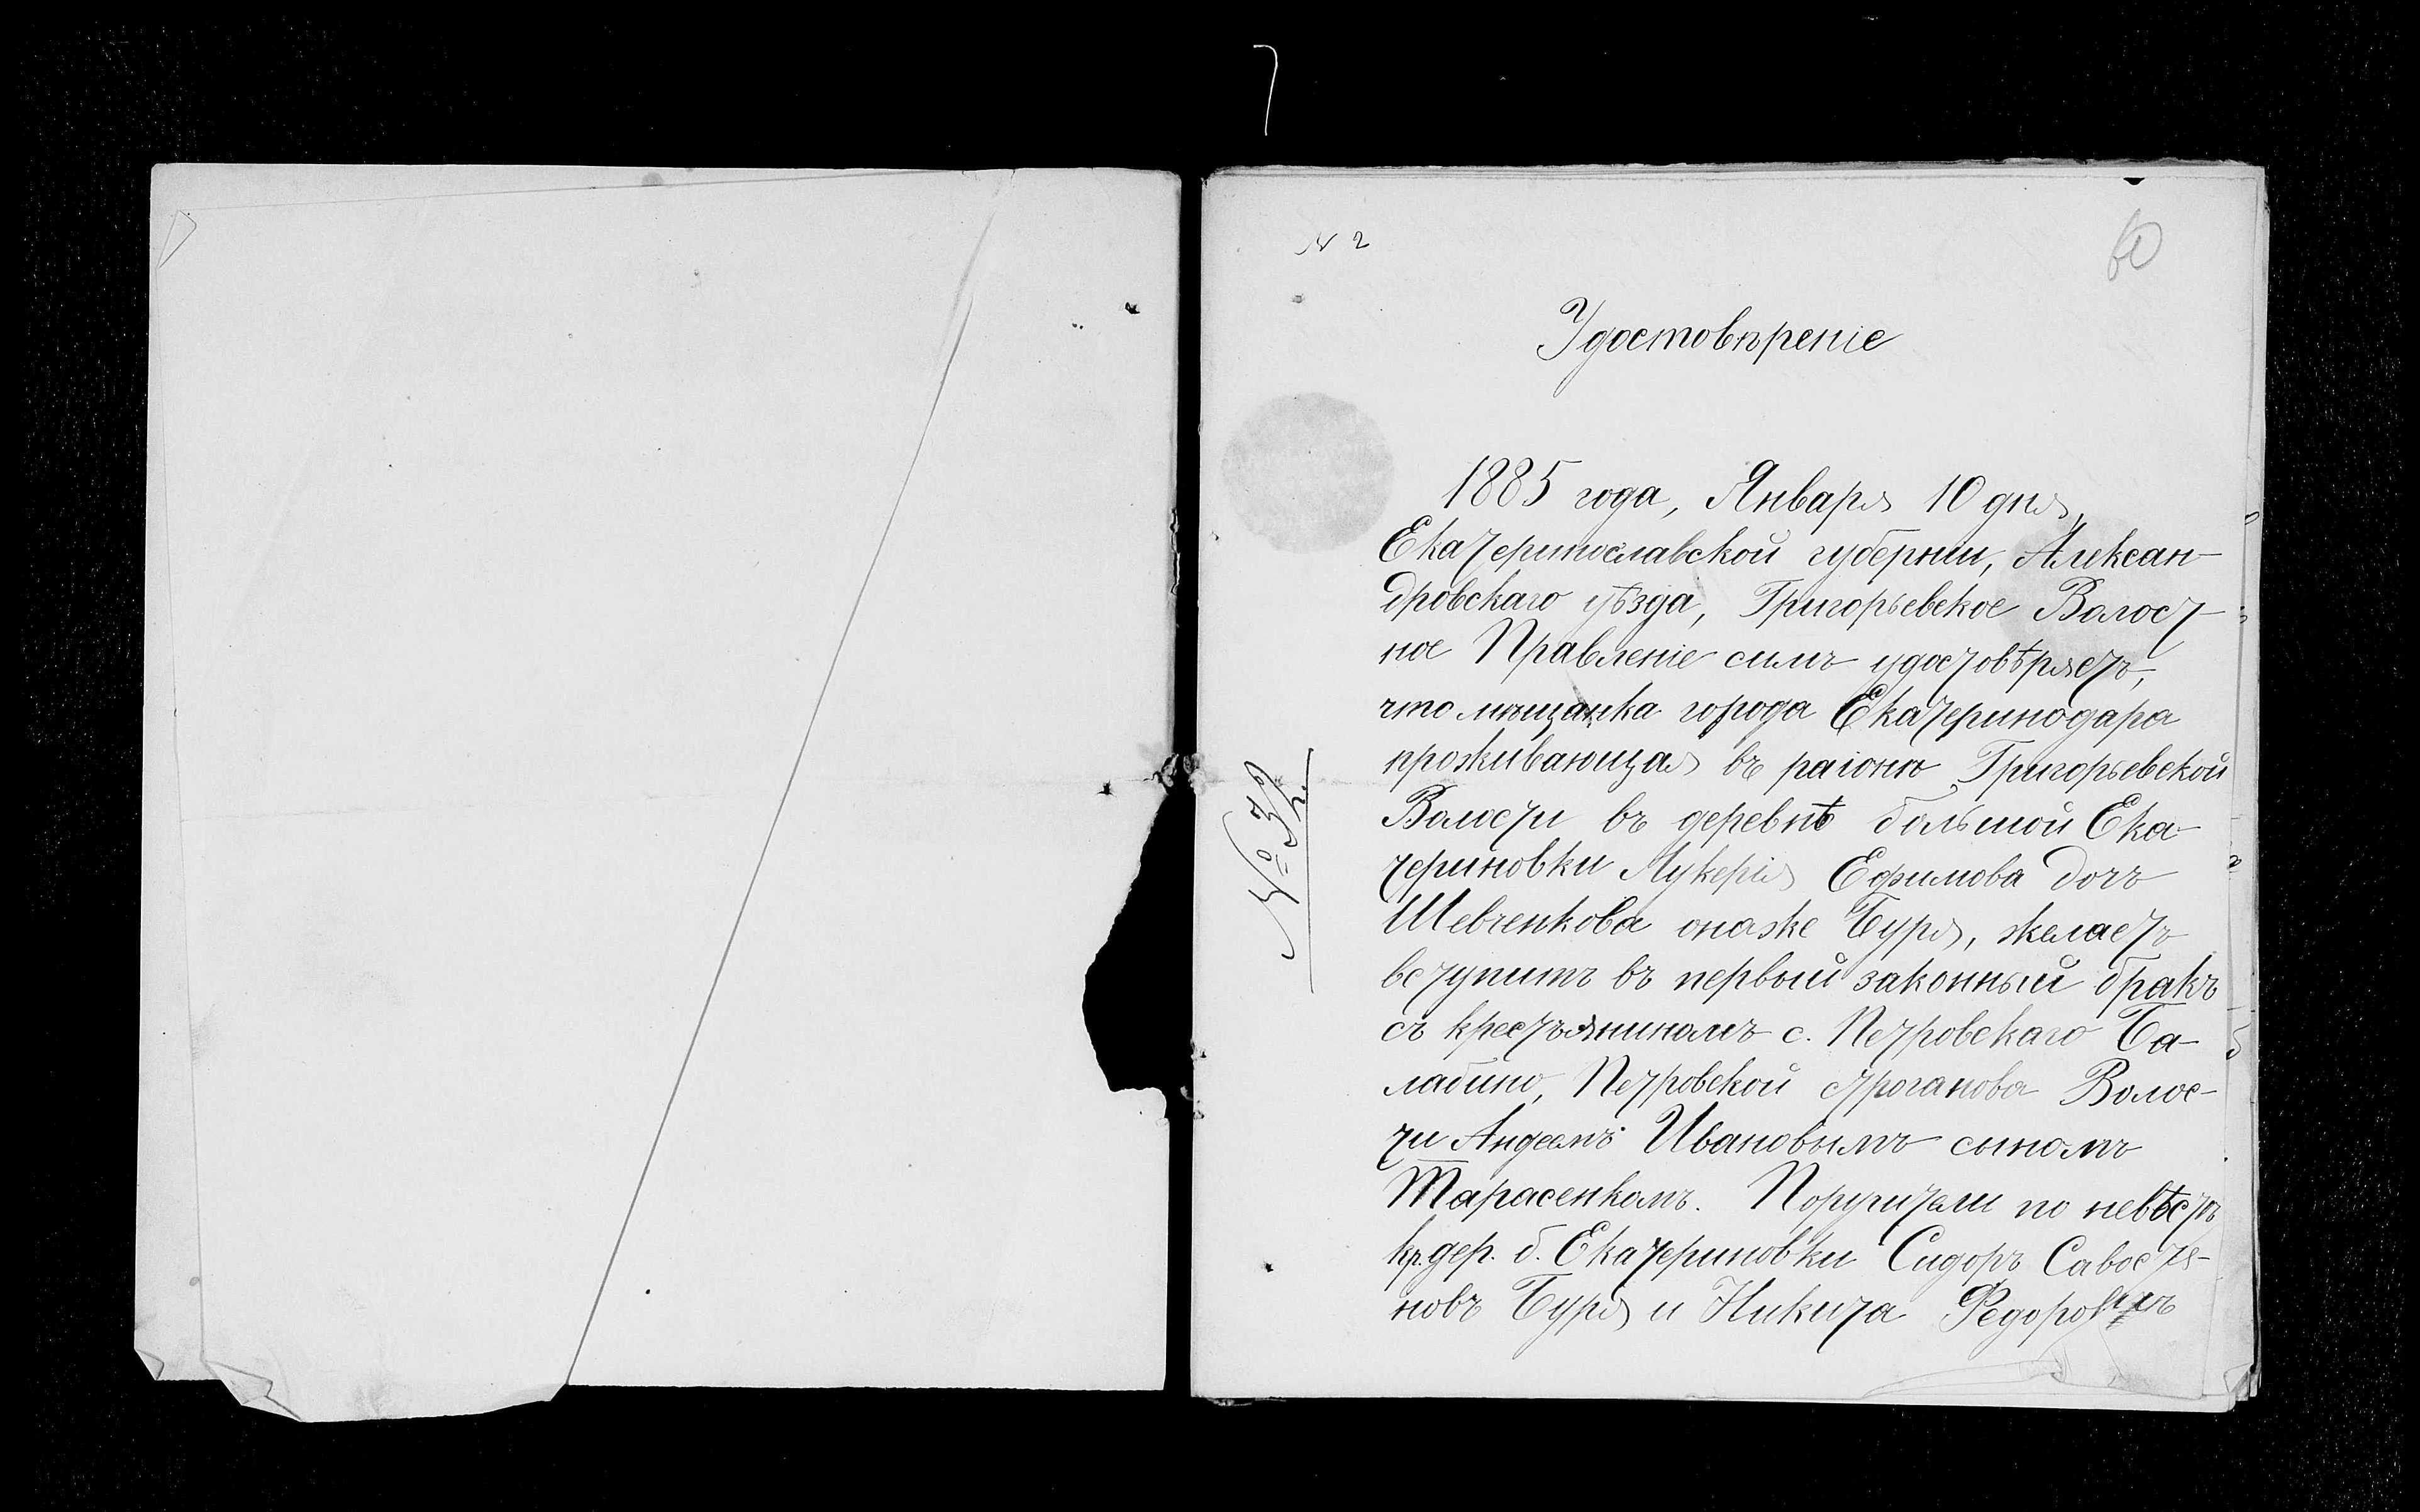 № 2
60
Удостовѣреніе
1885 года, Января 10 дня,
Екатеринославской губерніи, Алексан-
дровскаго уѣзда, Григорьевское Волост-
ное Правленіе симъ удостовѣряетъ,
что мѣщанка города Екатеринодара
проживающая въ раіонѣ Григорьевской
Волости въ деревнѣ большой Ека-
териновки Лукерія Ефимова дочь
Шевченкова онаже Буря, желаетъ
вступить въ первый законный бракъ
съ крестьяниномъ с. Петровскаго Ба-
лабино, Петровской Волос-
ти Ивановымъ сыномъ
Тарасенкомъ. Поручители по невѣстѣ
кр. дер. б. Екатериновки Сидоръ Савостя-
новъ Буря и Никита
№ 32